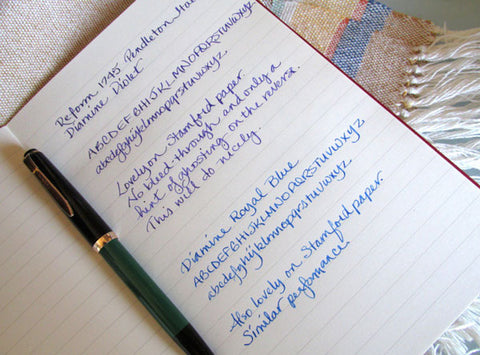 Reform 1745 Pendleton
Diamine Violet
ABCDEFGHIJKLMNOPQRSTUVWXYZ
abcdefghijklmnopqrstuvwxyz
Lovely on Stamford paper.
No bleed-through and only a
hint of ghosting on the reverse.
This will do nicely.
Diamine Royal Blue
ABCDEFGHIJKLMNOPQRSTUVWXYZ
abcdefghijklmnopqrstuvwxyz
Also lovely on Stamford paper.
Similar performance.